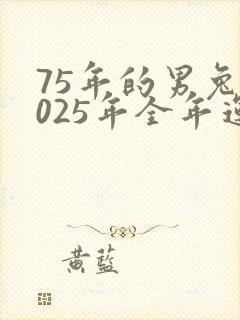 75年的男兔
025年全年运
黄蓝